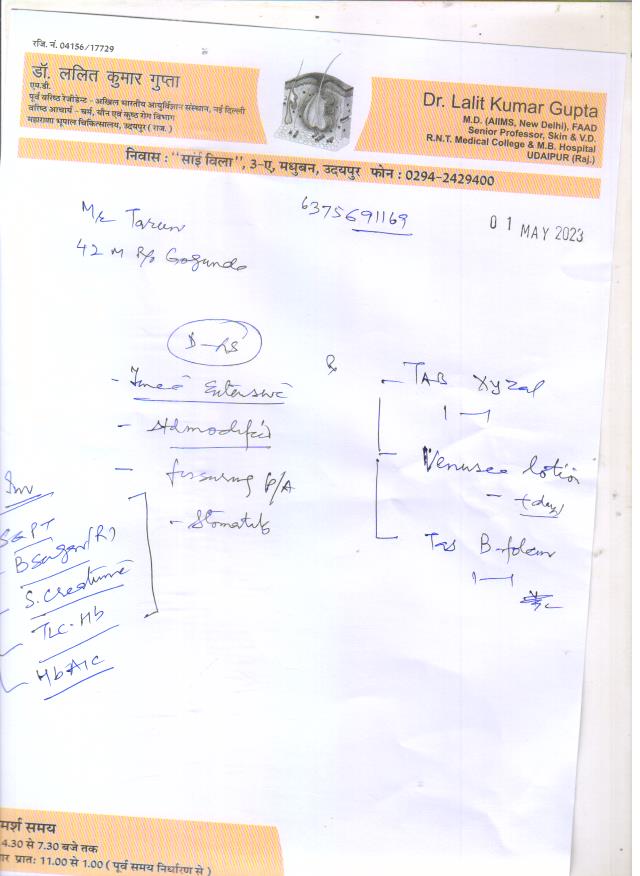 रजि. नं. 04156/17729
डॉ. ललित कुमार गुप्ता
एम.डी.
पूर्व वरिष्ठ रेजीडेन्ट - अखिल भारतीय आयुर्विज्ञान संस्थान, नई दिल्ली
वरिष्ठ आचार्य - चर्म, यौन एवं कुष्ठ रोग विभाग
महाराणा भूपाल चिकित्सालय, उदयपुर ( राज. )
Dr. Lalit Kumar Gupta
M.D. (AIIMS, New Delhi), FAAD
Senior Professor, Skin & V.D.
R.N.T. Medical College & M.B. Hospital
UDAIPUR (Raj.)
निवास : "साई विला", 3-ए, मधुबन, उदयपुर फोन : 0294-2429400
Tarun
6375691169
01 MAY 2023
42 M R/o Gogunda
TAB Xyzal
1
Extensive
fissuring P/A
Venusee lotion
Stomatitis
Inv
SGPT
B sugar (R)
S. Creatinine
TLC. Hb
HbA1c
मर्श समय
4.30 से 7.30 बजे तक
ार प्रातः 11.00 से 1.00 ( पूर्व समय निर्धारण से )